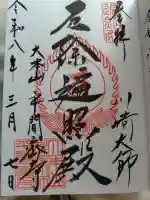 奉拝
川崎大師
厄除遍照殿
大本山 平間寺
令和八年三月七日